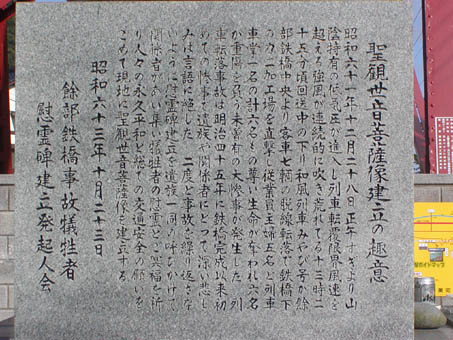 聖観世音菩薩像建立の趣意
昭和六十一年十二月二十八日正午すぎより山
陰特有の低気圧が進入し列車転覆限界風速を
超える強風が連続的に吹き荒れてる十三時二
十五分頃回送中の下り和風列車みやび号が餘
部鉄橋中央より客車七輌の脱線転落で鉄橋下
のカニ加工場を直撃し従業員主婦五名と列車
車掌一名の計六名もの尊い生命が奪われ六名
が重傷を負う未曽有の大惨事が発生した。列
車転落事故は明治四十五年に鉄橋完成以来初
めての惨事で遺族や関係者にとって深い悲し
みは言語に絶した。二度と事故を繰り返さな
いように慰霊碑建立を遺族一同が呼びかけて
関係者が相い集い犠牲者の慰霊とご冥福を祈
り人々の永久平和と総ての交通安全の願いを
こめて現地に聖観世音菩薩像を建立する。
昭和六十三年十月二十三日
餘部鉄橋事故犠牲者
慰霊碑建立発起人会
ガイドマップ